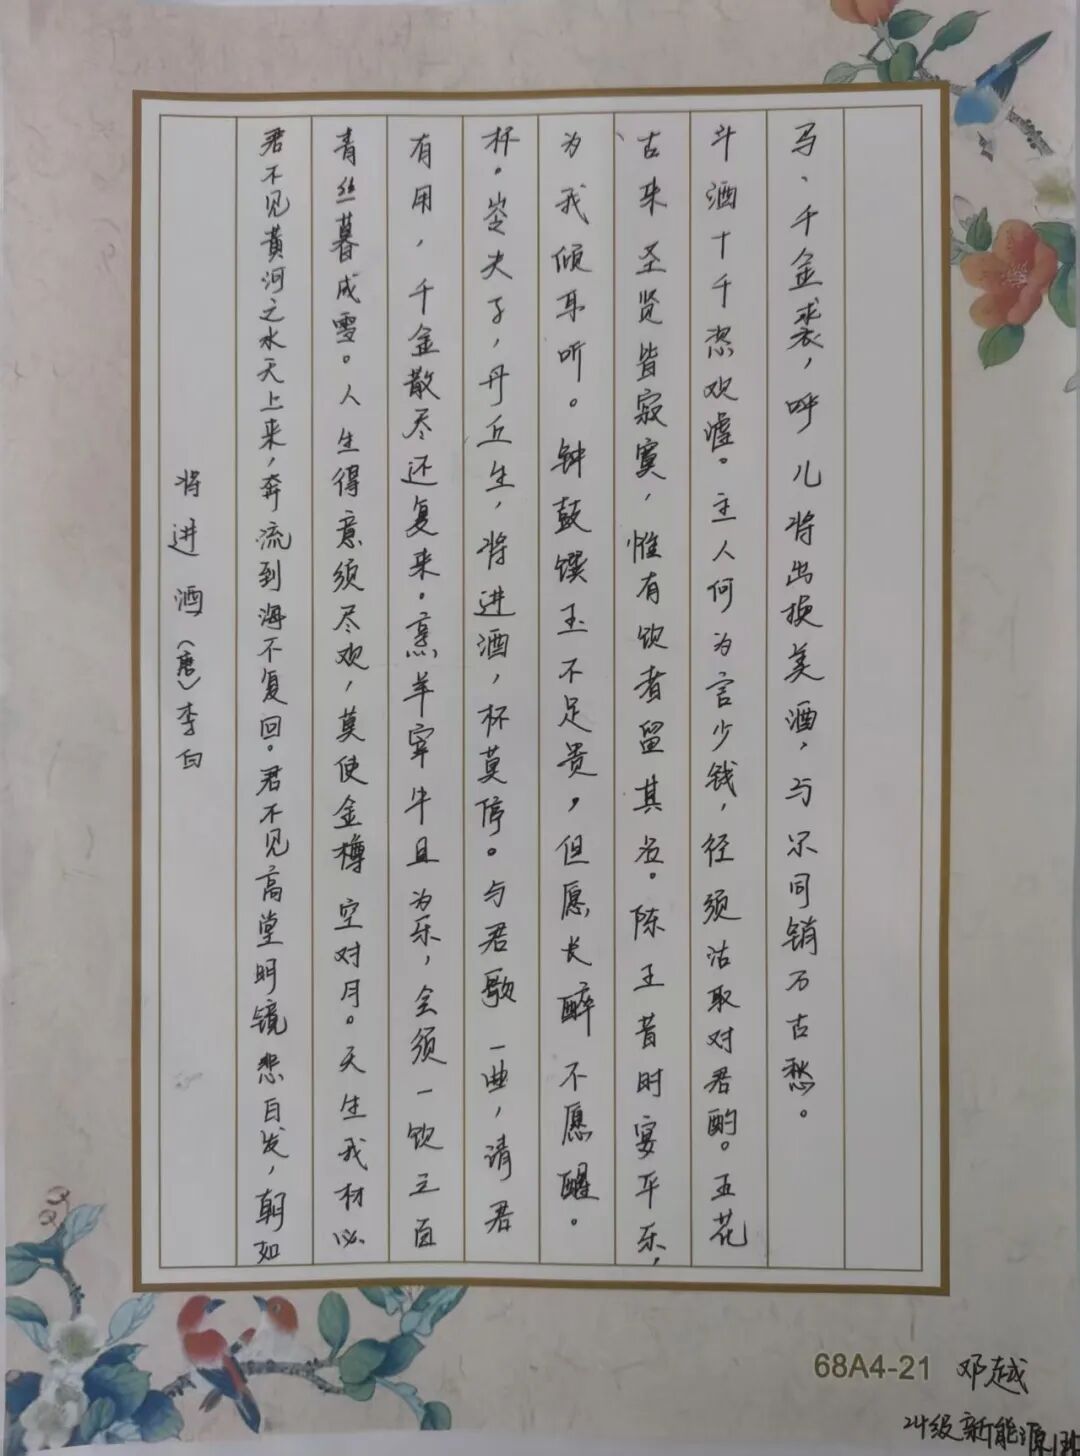 将进酒（唐）李白
君不见黄河之水天上来，奔流到海不复回。君不见高堂明镜悲白发，朝如
青丝暮成雪。人生得意须尽欢，莫使金樽空对月。天生我材必
有用，千金散尽还复来。烹羊宰牛且为乐，会须一饮三百
杯。岑夫子，丹丘生，将进酒，杯莫停。与君歌一曲，请君
为我倾耳听。钟鼓馔玉不足贵，但愿长醉不愿醒。
古来圣贤皆寂寞，惟有饮者留其名。陈王昔时宴平乐，
斗酒十千恣欢谑。主人何为言少钱，径须沽取对君酌。五花
马、千金裘，呼儿将出损美酒，与尔同销万古愁。
68A4-21 邓越
24级新能源1班